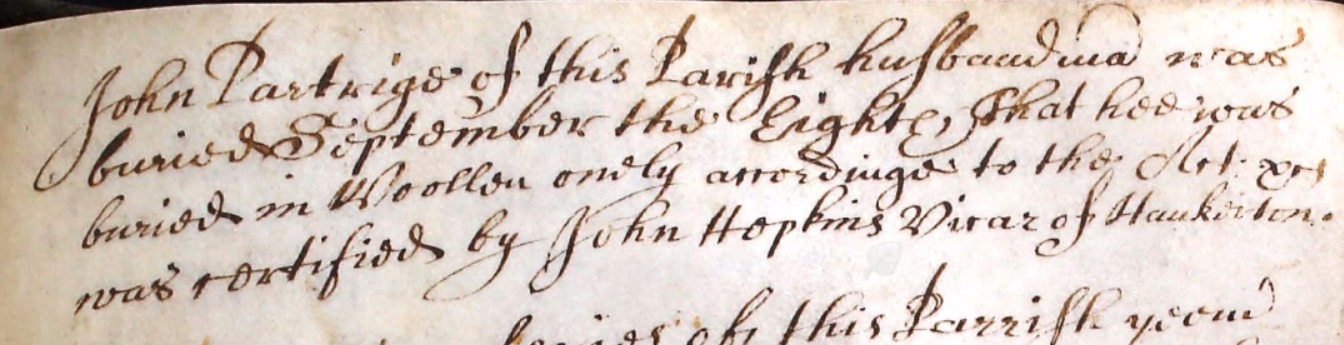 John Partrige of this Parish husbandma was
buried September the Eight, That hee was
buried in Woollen onely accordinge to the Act
was certified by John Hopkins Vicar of Hankerton.
of this Parrish yeom